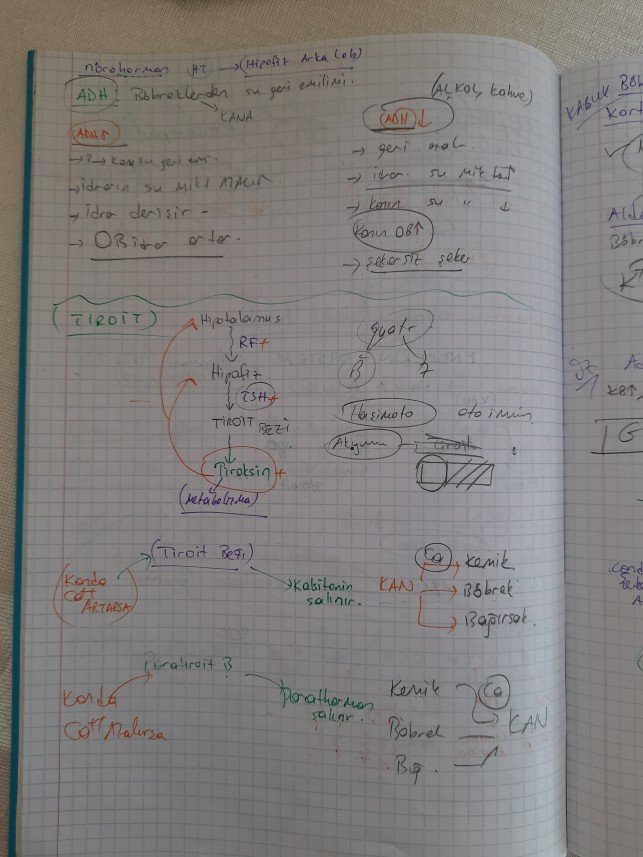 nörohormon HT → (Hipofiz Arka lob)
ADH: Böbreklerden su geri emilimi.
→ KANA
(ALKOL, kahve)
ADH↑
→ su geri em.
→ idrarın su mikt AZALIR
→ idrar derişir -
→ OB idrar artar.
ADH ↓
→ geri azalır
→ idrar su mikt
→ kanın su " ↓
Kanın OB↑
→ şekersiz şeker
TİROİT
Hipotalamus
↓ RF+
Hipofiz
↓ TSH+
TİROİT BEZİ
↓
Tiroksin +
(Metabolizma)
guatr
B İ
Haşimoto otoimün
(Tiroit Bezi)
Kanda Ca++ ARTARSA
Kalsitonin salınır.
KAN
Ca
→ Kemik
→ Böbrek
→ Bağırsak
Paratiroit B
Kanda Ca++ Azalırsa
Parathormon salınır.
Kemik
Böbrek
Bağ.
Ca
KAN
KABUK Böb
Kort
Böbre